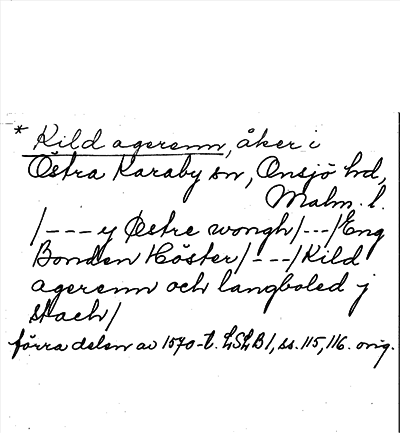 * Kild agerenn, åker i
Östra Karaby sn, Onsjö hd,
Malm. l.
/--- y Østre wongh/---/Eng
Bonden Höster/---/Kild
agerenn och langboled j
stach/
förra delen av 1570-t. LSLB 1, ss. 115, 116. orig.